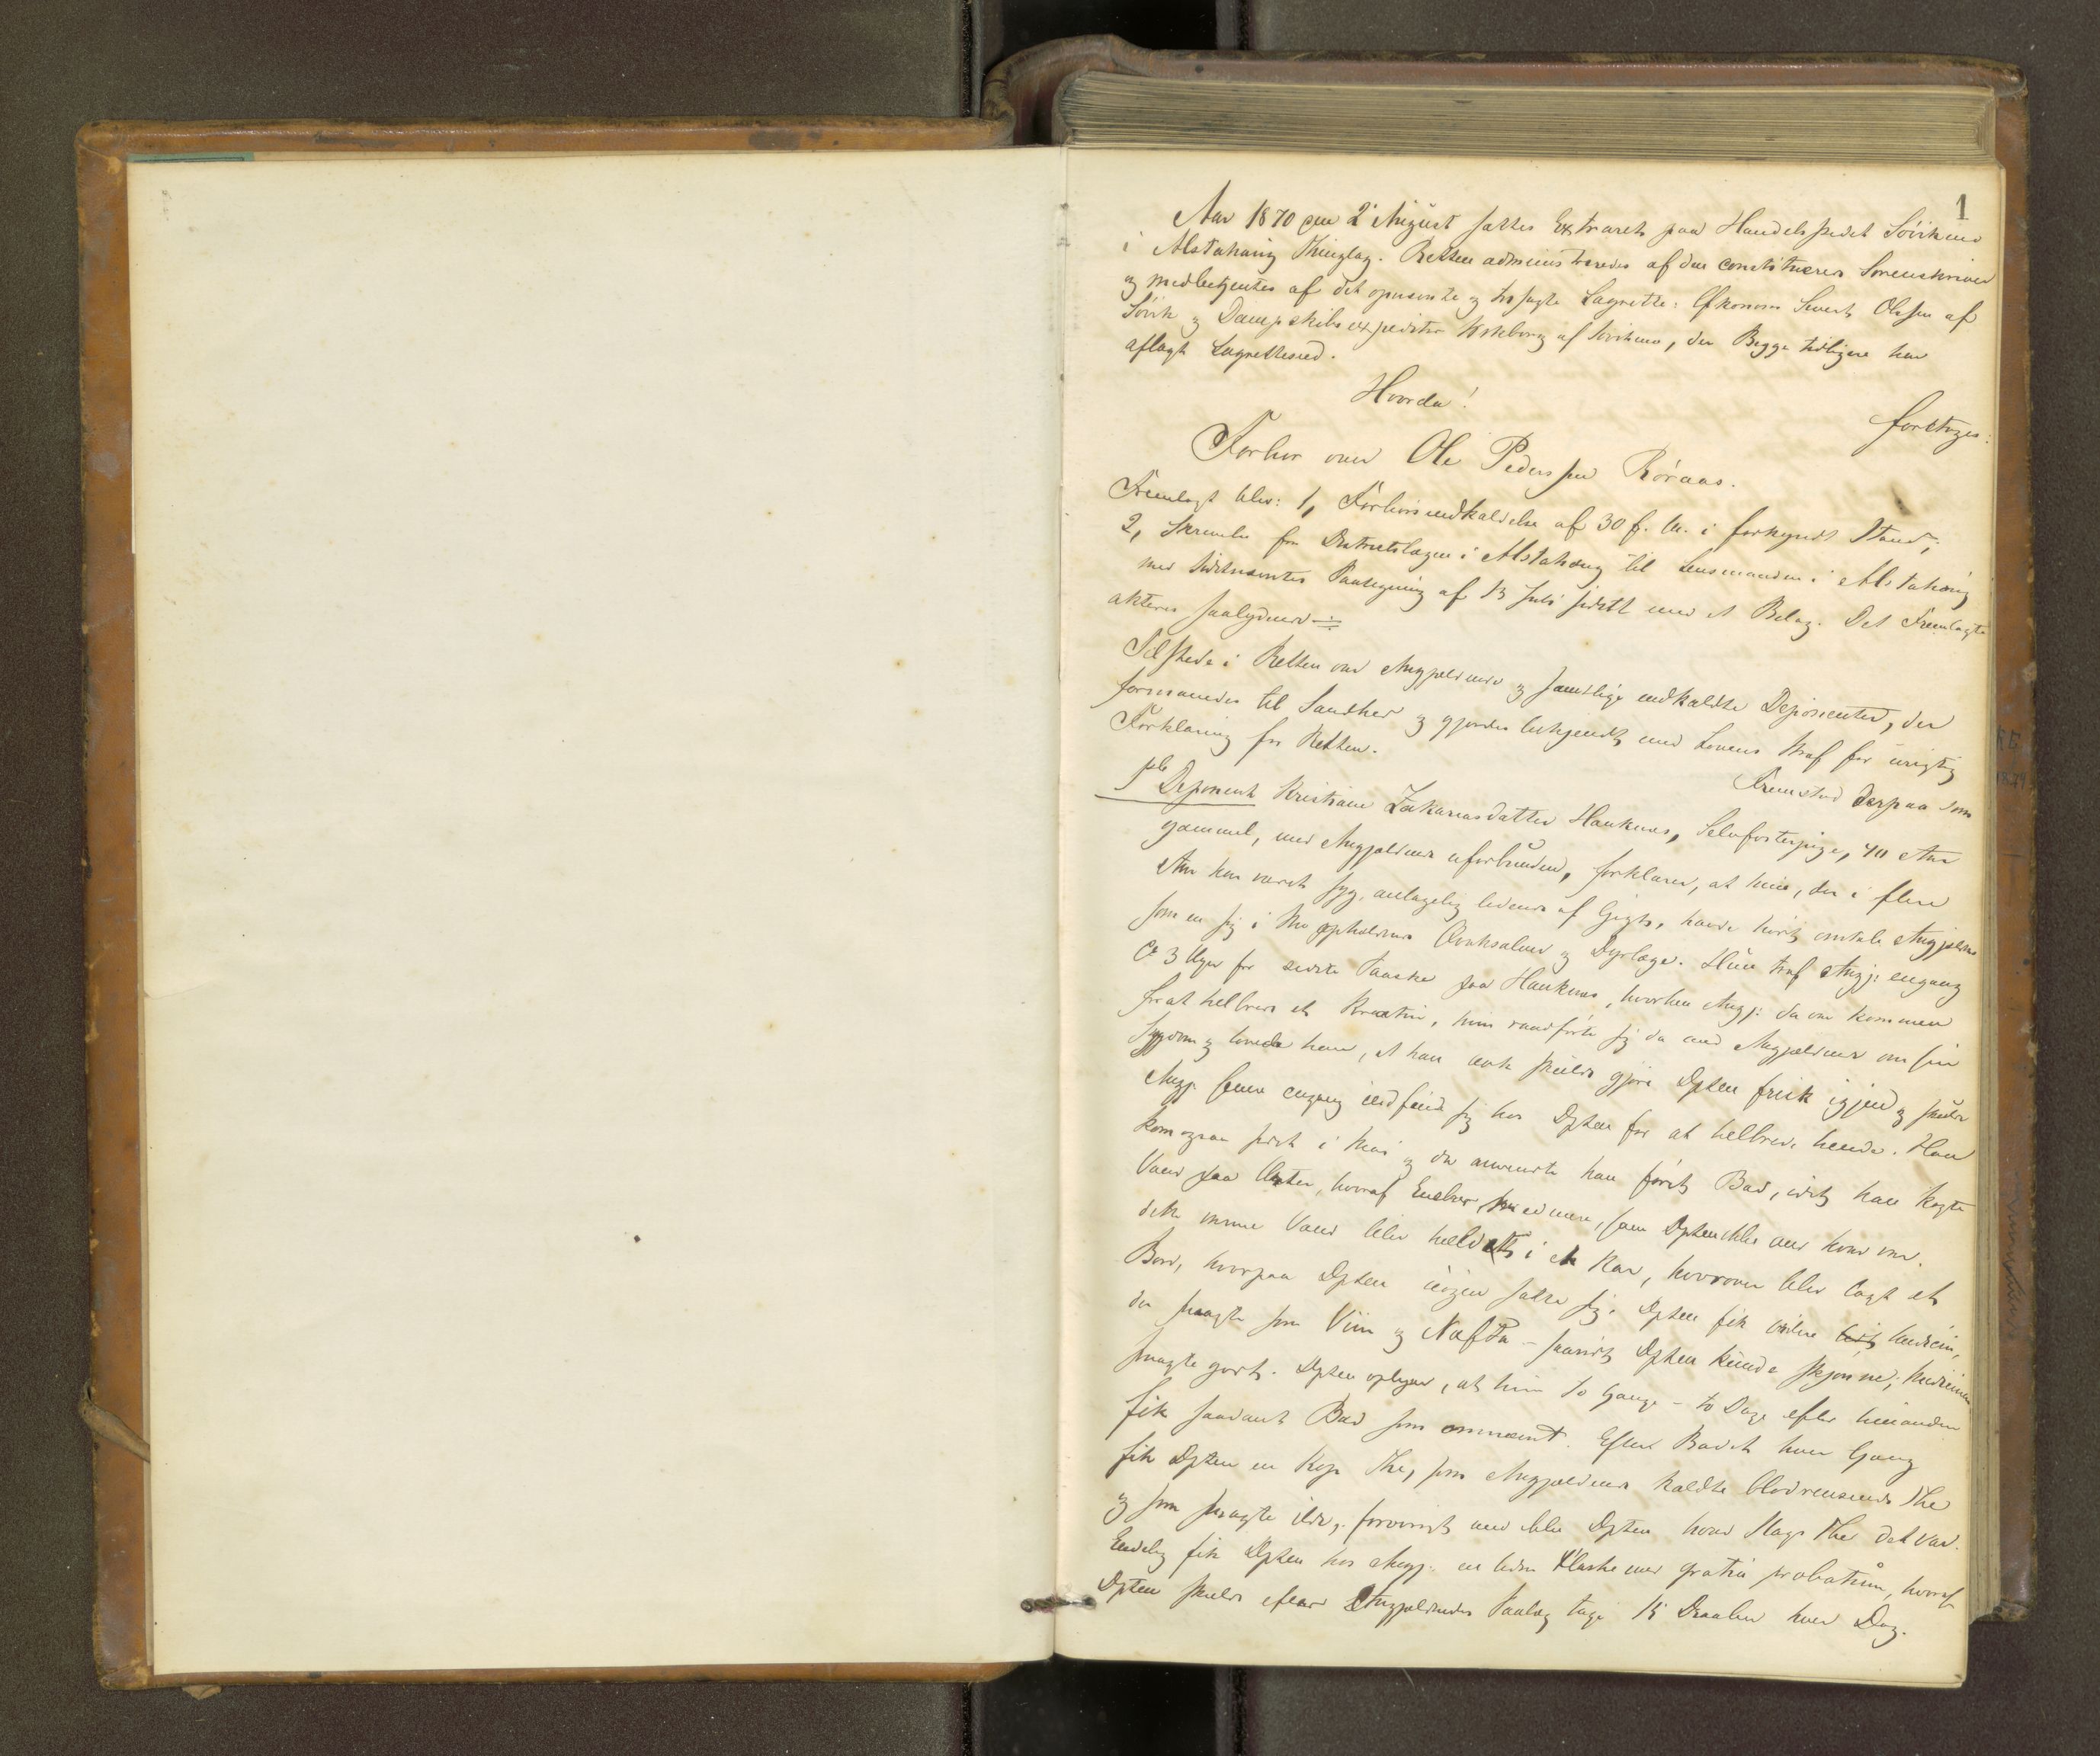 1
Aar 1870 den 2 August sattes Extraret paa Handelsstedet Søvikens
i Alstahaug Thinglag. Retten administreredes af den constituerede Sorenskriver
og medbetjentes af det opnævnte og tilsagte Lagrette: Økonom Sivert Olsen af
Søvik og Dampskibsexpeditør af Søviken, der Begge tidligere har
aflagt Lagrettesed.
Hvorda!
foretoges:
Forhør over Ole Pederssen Røraas.
Fremlagt blev: 1, Forhørsindkaldelse af 30 f. M. i forkyndt Stand,
2, Skrivelse fra Districtslægen i Alstahaug til Lensmanden i Alstahaug
med Sidstnævntes Paategning af 13 Juli sidstl med et Bilag. Det Fremlagte
akteres saalydende ÷
Tilstede i Retten var Angjældende og samtlige indkaldte Deponenter, der
formanedes til Sandhed og gjordes bekjendt med Lovens Straf for urigtig
Forklaring for Retten.
Fremstod derpaa som
1ste Deponent Kristiane Zakariasdatter Hauknes, Selvfosterpige, 40 Aar
gammel, med Angjældende uforbunden, forklarer, at hun, der i flere
Aar har været syg, antagelig lidende af Gigt, havde hørt omtale Angjældende
som en sig i Mo opholdende Kvaksalver og Dyrlæge. Hun traf Angj: engang
Ca 3 Uger før sidste Paaske paa Hauknes, hvorhen Angj: da var kommen
for at helbrede et Kreatur, hun raadførte sig da med Angjældende om sin
Sygdom og lovede han, at han nok skulde gjøre Dpten frisk igjen og skulde
Angj. senere engang indfinde sig hos Dpten for at helbrede hende. Han
kom ogsaa sidst i Mai og da anvendte han først Bad, idet han kogte
Vand paa Urter, hvoraf Einebær, med mere, som Dpten ikke ved hvad var.
dette varme Vand blev heldt i et Kar, hvorover blev lagt et
Bord, hvorpaa Dpten nøgen satte sig. Dpten fik videre Medicin,
der smagte som Viin og Nafta – saavidt Dpten kunde skjønne; Medicinen
smagte godt. Dpten oplyser, at hun to Gange – to Dage efter hinanden
fik saadant Bad som ommeldt. Efter Badet hver Gang
fik Dpten en Kop The, som Angjældende kaldte blodrensende The
og som smagte ilde, forøvrigt ved ikke Dpten hvad Slags The det var.
Endelig fik Dpten hos Angj. en liden Flaske med gratia probatum, hvoraf
Dpten skulde efter Angjældendes Paalæg tage 15 Draaber hver Dag.